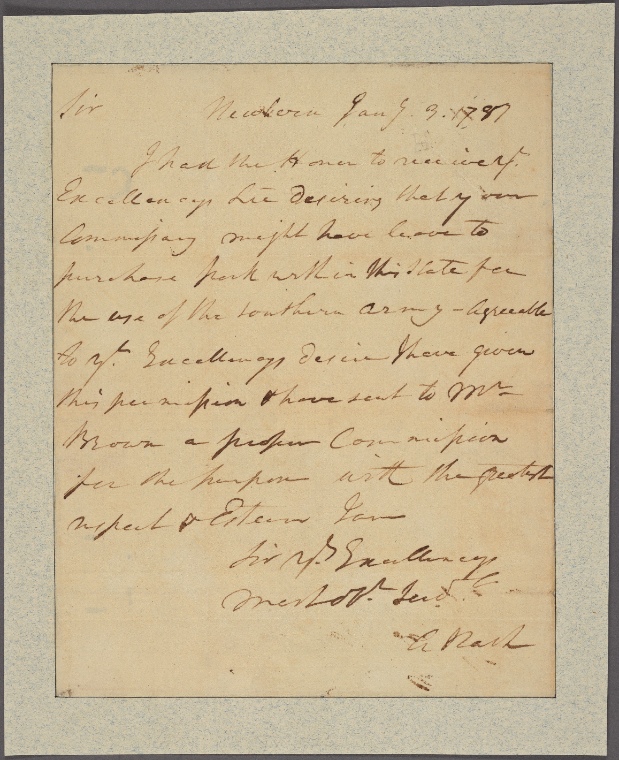 Sir Newbern Jany. 3. 1781
I had the Honor to receive yr.
Excellencys Lre desiring that your
Commissary might have leave to
purchase Pork within this State for
the use of the Southern army - agreeable
to yr. Excellencys desire I have given
this permission & have sent to Mr
Brown a proper Commission
for the purpose with the greatest
respect & Esteem I am
Sir yr. Excellencys
most obt. Servt.
A Nash